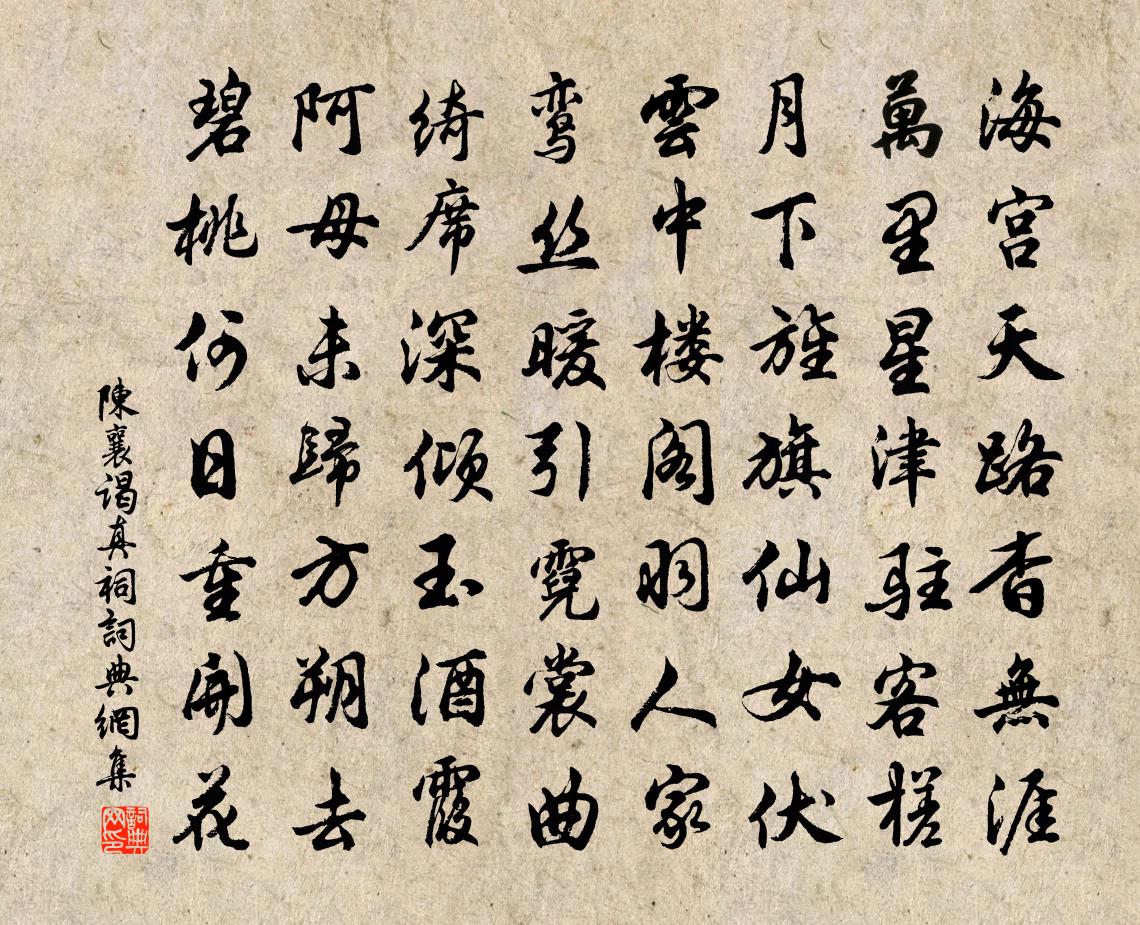 海宫天路杳無涯
萬里星津驻客槎
月下旌旗仙女伏
雲中楼阁羽人家
鸾丝暖引霓裳曲
绮席深倾玉酒霞
阿母未歸方朔去
碧桃何日重開花
陳襄谒真祠詞典網集
詞典网印